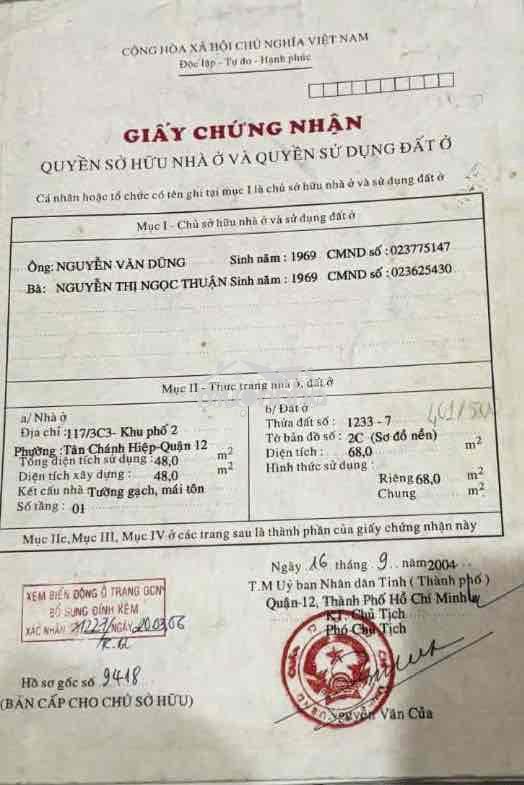 CỘNG HÒA XÃ HỘI CHỦ NGHĨA VIỆT NAM
Độc lập - Tự do - Hạnh phúc
GIẤY CHỨNG NHẬN
QUYỀN SỞ HỮU NHÀ Ở VÀ QUYỀN SỬ DỤNG ĐẤT Ở
Cá nhân hoặc tổ chức có tên ghi tại mục I là chủ sở hữu nhà ở và sử dụng đất ở
Mục I - Chủ sở hữu nhà ở và sử dụng đất ở
Ông: NGUYỄN VĂN DŨNG Sinh năm : 1969 CMND số : 023775147
Bà: NGUYỄN THỊ NGỌC THUẬN Sinh năm : 1969 CMND số : 023625430
Mục II - Thực trạng nhà ở, đất ở
a/ Nhà ở
Địa chỉ : 117/3C3- Khu phố 2
Phường : Tân Chánh Hiệp-Quận 12
Tổng diện tích sử dụng : 48,0 m2
Diện tích xây dựng : 48,0 m2
Kết cấu nhà Tường gạch, mái tôn
Số tầng : 01
b/ Đất ở
Thửa đất số : 1233 - 7
Tờ bản đồ số : 2C (Sơ đồ nền)
Diện tích : 68,0 m2
Hình thức sử dụng :
Riêng 68,0 m2
Chung m2
Mục IIc, Mục III, Mục IV ở các trang sau là thành phần của giấy chứng nhận này
Ngày 16 tháng 9 năm 2004
T.M Uỷ ban Nhân dân Tỉnh ( Thành phố )
Quận-12, Thành Phố Hồ Chí Minh
KT. Chủ Tịch
Phó Chủ Tịch
XEM BIẾN ĐỘNG Ở TRANG GCN
BỔ SUNG ĐÍNH KÈM
XÁC NHẬN NGÀY 20.03.06
Hồ sơ gốc số 9418
(BẢN CẤP CHO CHỦ SỞ HỮU)
Nguyễn Văn Của